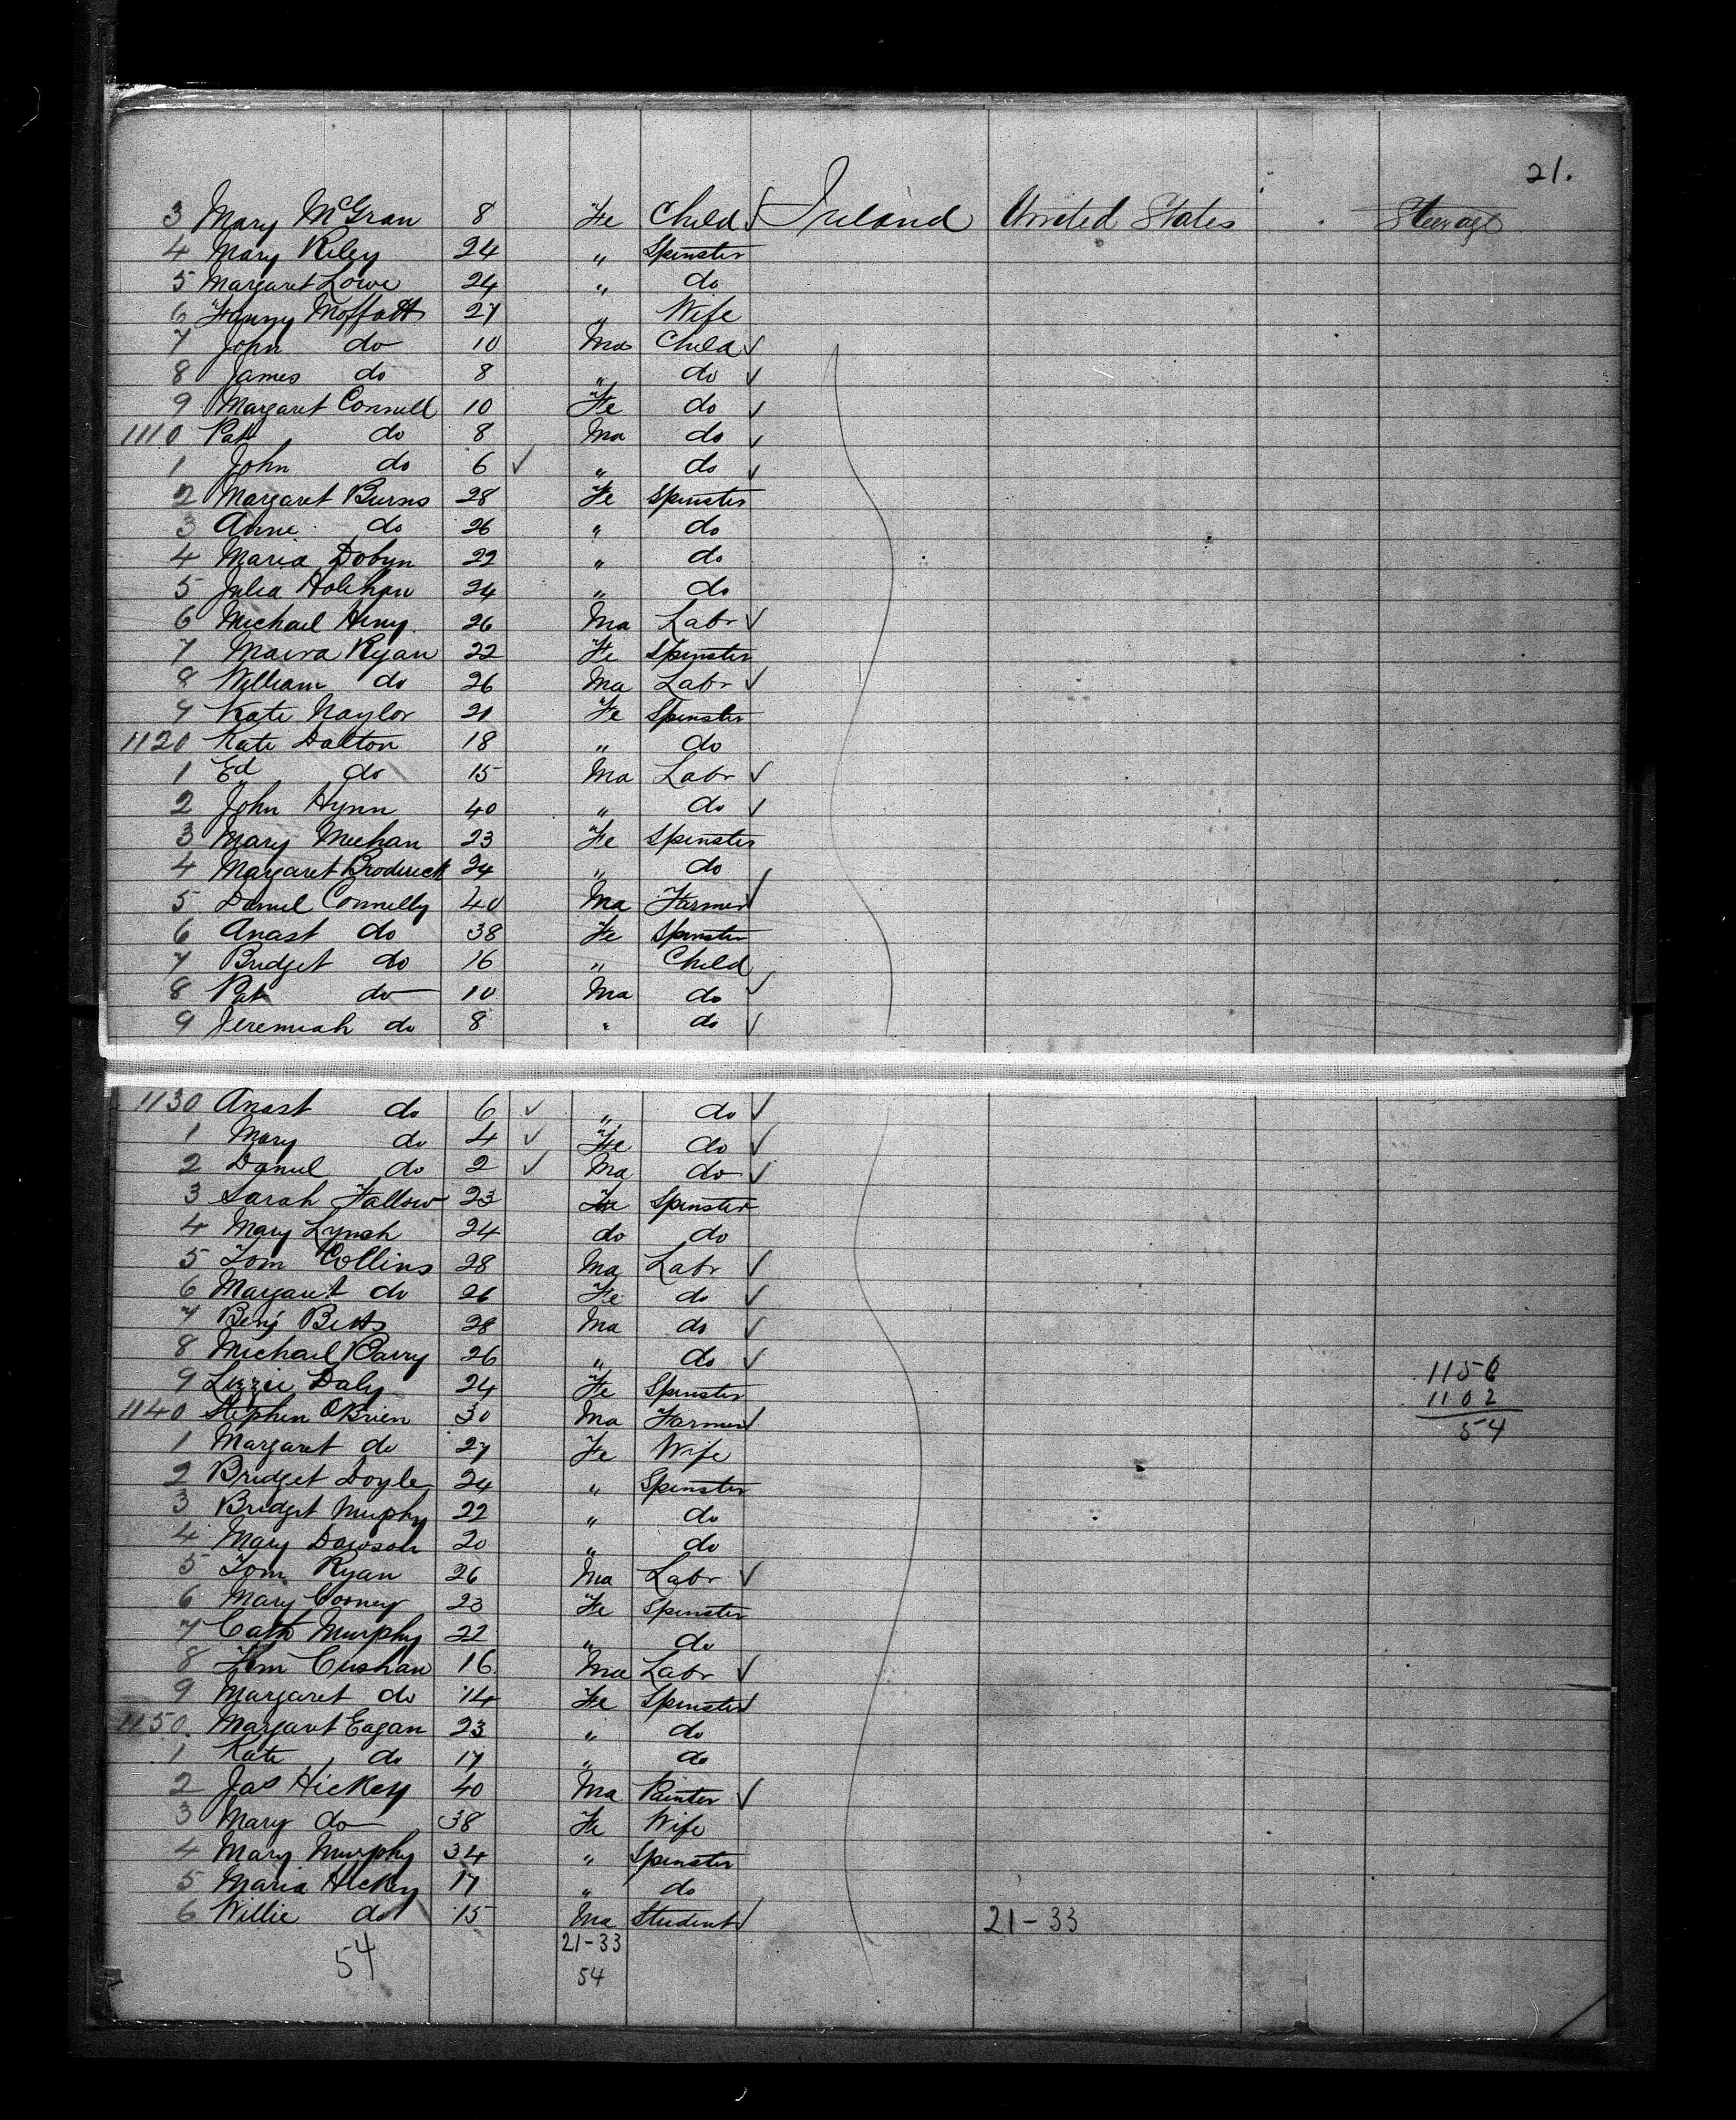 21.
3 Mary McGran 8 Fe Child ✓ Ireland United States Steerage
4 Mary Riley 24 " Spinster
5 Margaret Lowe 24 " do
6 Fanny Moffatt 27 " Wife
7 John do 10 Ma Child ✓
8 James do 8 " do ✓
9 Margaret Connell 10 Fe do ✓
1110 Pat do 8 Ma do ✓
1 John do 6 ✓ " do ✓
2 Margaret Burns 28 Fe Spinster
3 Anne do 26 " do
4 Maria Dobyn 22 " do
5 Julia Holihan 24 " do
6 Michael Heny 26 Ma Labr ✓
7 Maria Ryan 22 Fe Spinster
8 William do 26 Ma Labr ✓
9 Kate Naylor 21 Fe Spinster
1120 Kate Dalton 18 " do
1 Ed do 15 Ma Labr ✓
2 John Hynn 40 " do ✓
3 Mary Meehan 23 Fe Spinster
4 Margaret Broderick 24 " do
5 Daniel Connelly 40 Ma Farmer ✓
6 Anast do 38 Fe Spinster
7 Bridget do 16 " Child
8 Pat do 10 Ma do ✓
9 Jeremiah do 8 " do ✓
1130 Anast do 6 ✓ " do ✓
1 Mary do 4 ✓ Fe do ✓
2 Daniel do 2 ✓ Ma do ✓
3 Sarah Fallow 23 Fe Spinster
4 Mary Lynch 24 do do
5 Tom Collins 28 Ma Labr ✓
6 Margaret do 26 Fe do ✓
7 Benj Betts 28 Ma do ✓
8 Michael Barry 26 " do ✓
1156
9 Lizzie Daly 24 Fe Spinster
1102
1140 Stephen OBrien 30 Ma Farmer ✓
54
1 Margaret do 27 Fe Wife
2 Bridget Doyle 24 " Spinster
3 Bridget Murphy 22 " do
4 Mary Dawson 20 " do
5 Tom Ryan 26 Ma Labr ✓
6 Mary Cooney 23 Fe Spinster
7 Cath Murphy 22 " do
8 Tim Cushan 16 Ma Labr ✓
9 Margaret do 14 Fe Spinster ✓
1150 Margaret Eagan 23 " do
1 Kate do 17 " do
2 Jas Hickey 40 Ma Painter ✓
3 Mary do 38 Fe Wife
4 Mary Murphy 34 " Spinster
5 Maria Hickey 17 " do
6 Willie do 15 Ma Student ✓ 21-33
54 21-33
54